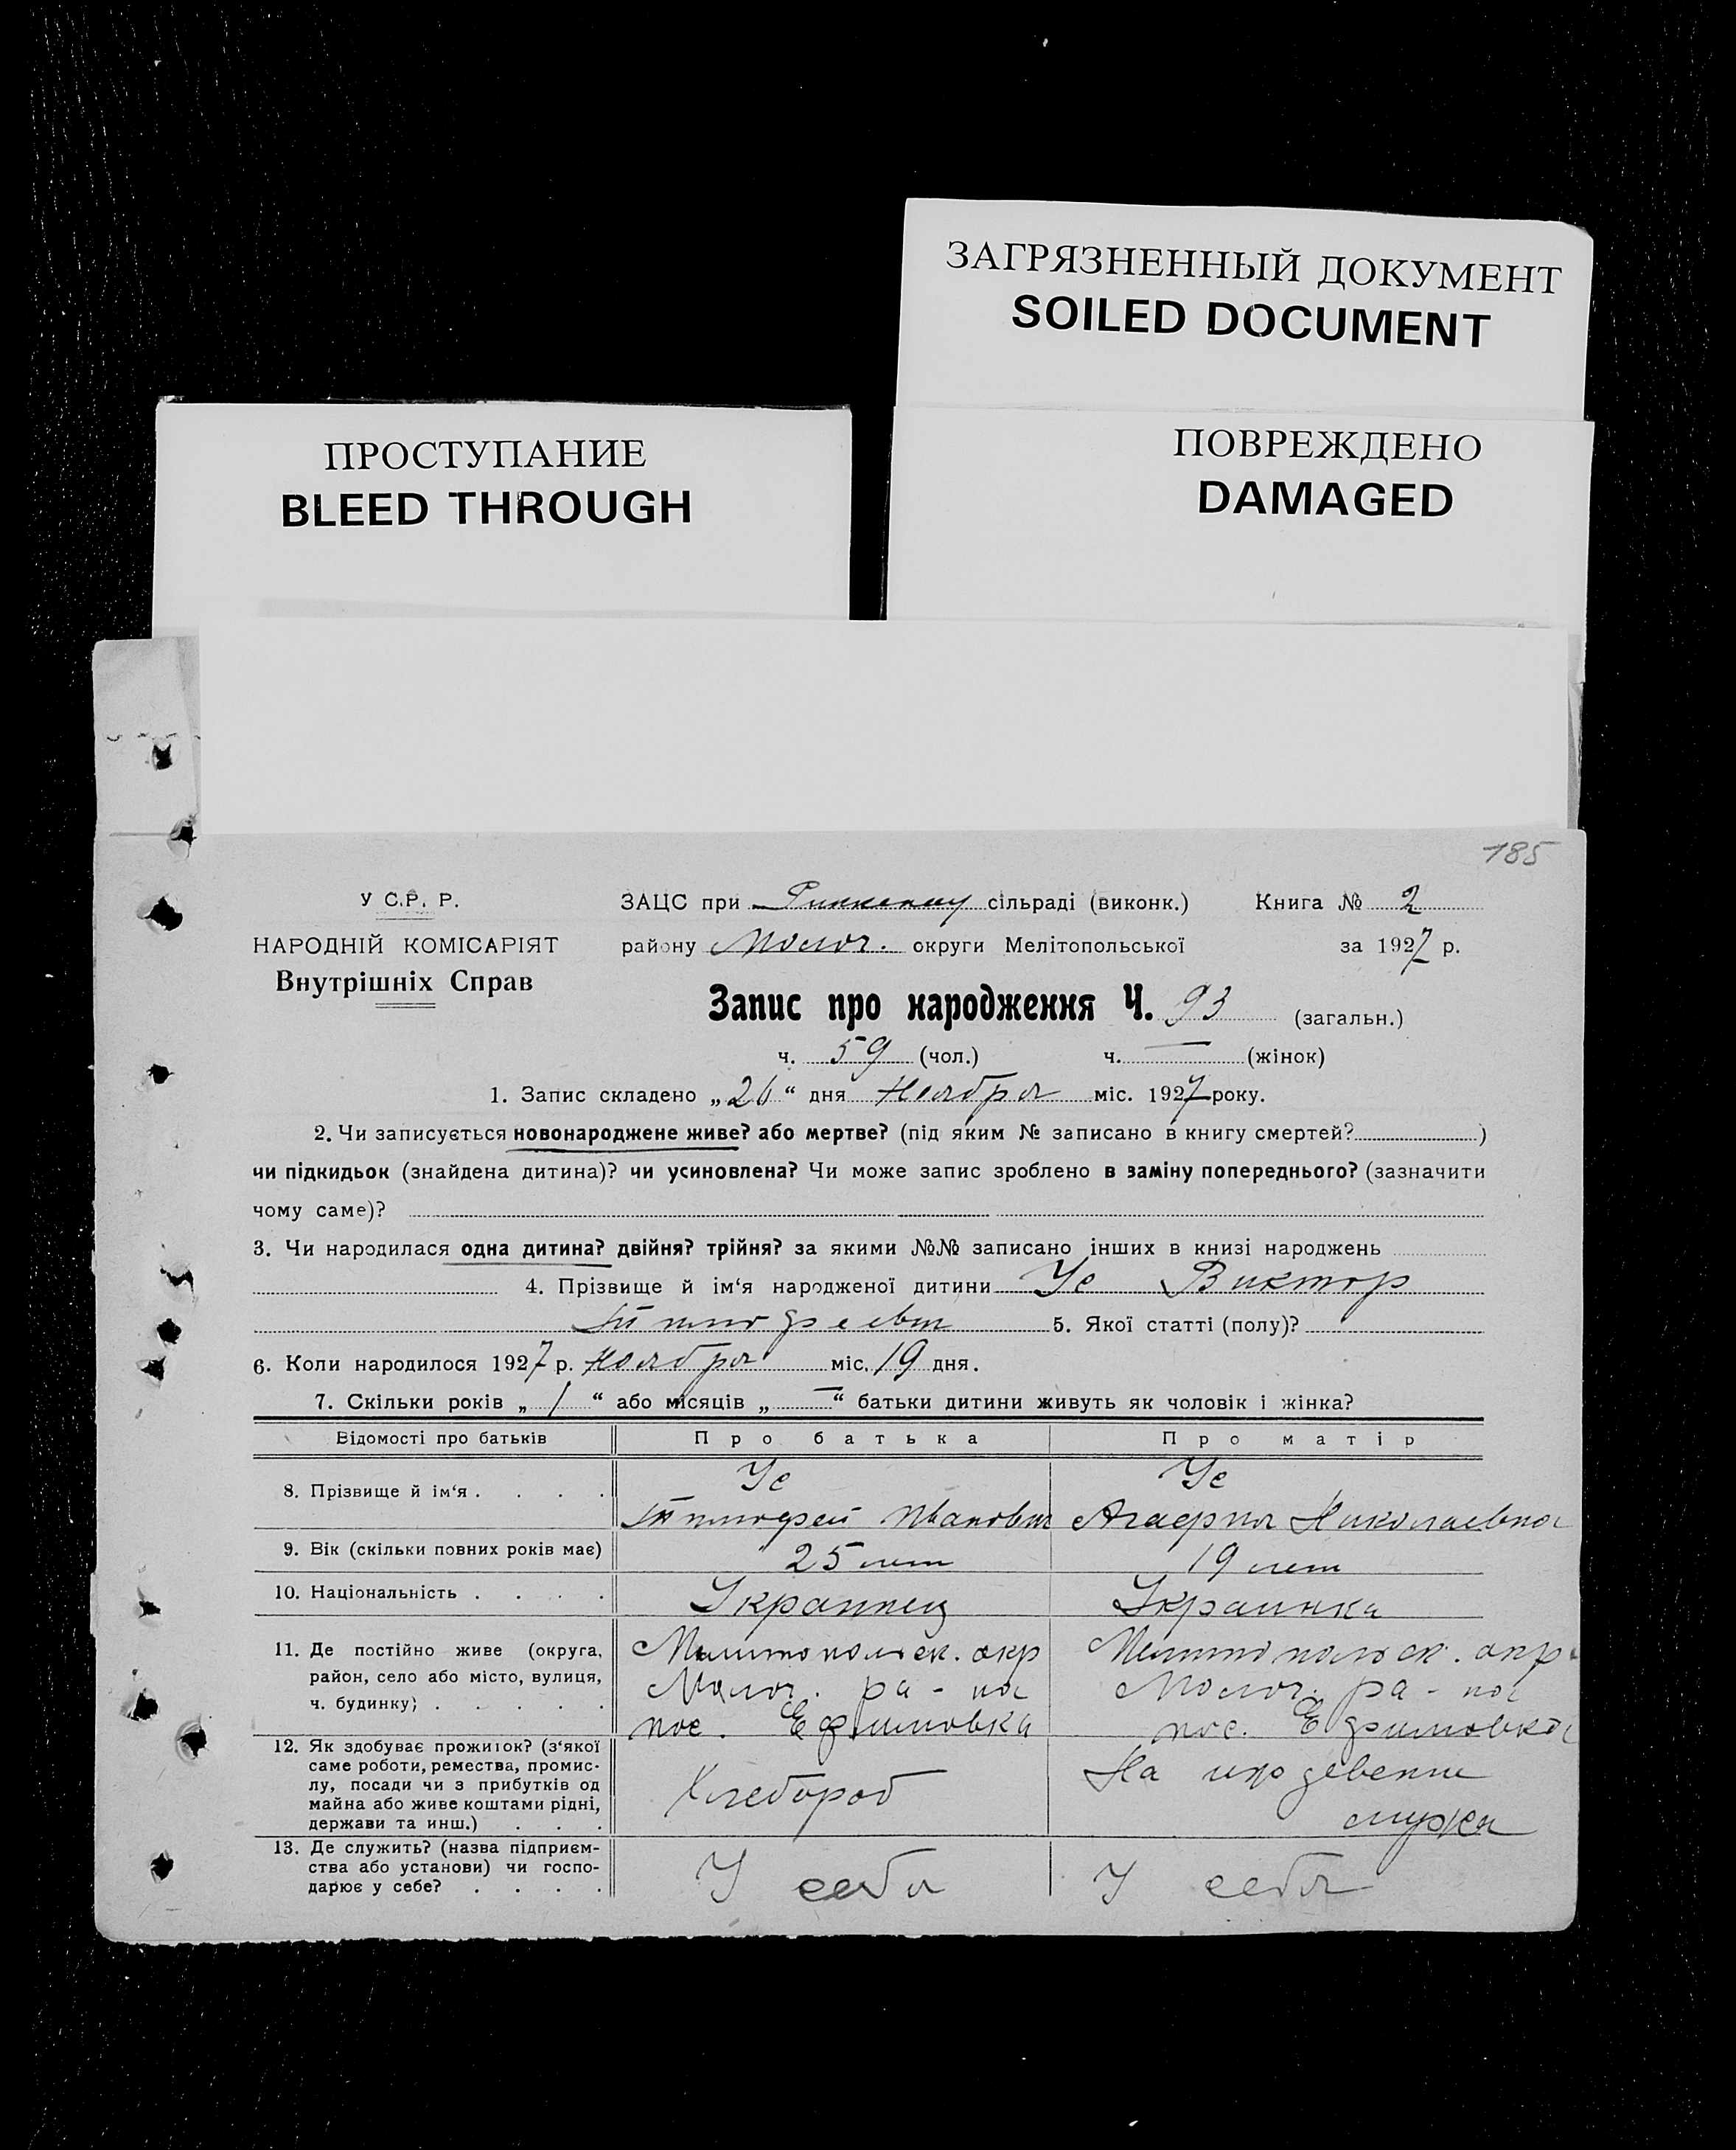 ЗАГРЯЗНЕННЫЙ ДОКУМЕНТ
SOILED DOCUMENT
ПРОСТУПАНИЕ
BLEED THROUGH
ПОВРЕЖДЕНО
DAMAGED
185
У С.Р. Р.
НАРОДНІЙ КОМІСАРІЯТ
Внутрішніх Справ
ЗАЦС при сільраді (виконк.) Книга № 2
району Молоч. округи Мелітопольської за 1927 р.
Запис про народження Ч. 93 (загальн.)
ч. 59 (чол.) ч. — (жінок)
1. Запис складено „26“ дня Ноября міс. 1927 року.
2. Чи записується новонароджене живе? або мертве? (під яким № записано в книгу смертей?)
чи підкидьок (знайдена дитина)? чи усиновлена? Чи може запис зроблено в заміну попереднього? (зазначити
чому саме)?
3. Чи народилася одна дитина? двійня? трійня? за якими №№ записано інших в книзі народжень
4. Прізвище й ім‘я народженої дитини Ус Виктор
Тимофеевич 5. Якої статті (полу)?
6. Коли народилося 1927 р. Ноября міс. 19 дня.
7. Скільки років „1“ або місяців „—“ батьки дитини живуть як чоловік і жінка?
Відомості про батьків Про батька Про матір
8. Прізвище й ім‘я . . . . Ус Ус
Тимофей Иванович Агафия Николаевна
9. Вік (скільки повних років має) 25 лет 19 лет
10. Національність . . . . Украинец Украинка
11. Де постійно живе (округа, район, село або місто, вулиця, ч. будинку) . . . . .
Мелитопольск. окр Мелитопольск. окр.
Молоч. ра-на Молоч. ра-на
пос. Ефимовка пос. Ефимовка
12. Як здобуває прожиток? (з‘якої
саме роботи, ремества, промис-
лу, посади чи з прибутків од
майна або живе коштами рідні,
держави та инш.) . . .
Хлебороб На иждевении
мужа
13. Де служить? (назва підприєм-
ства або установи) чи госпо-
дарює у себе? . . . .
У себя У себя